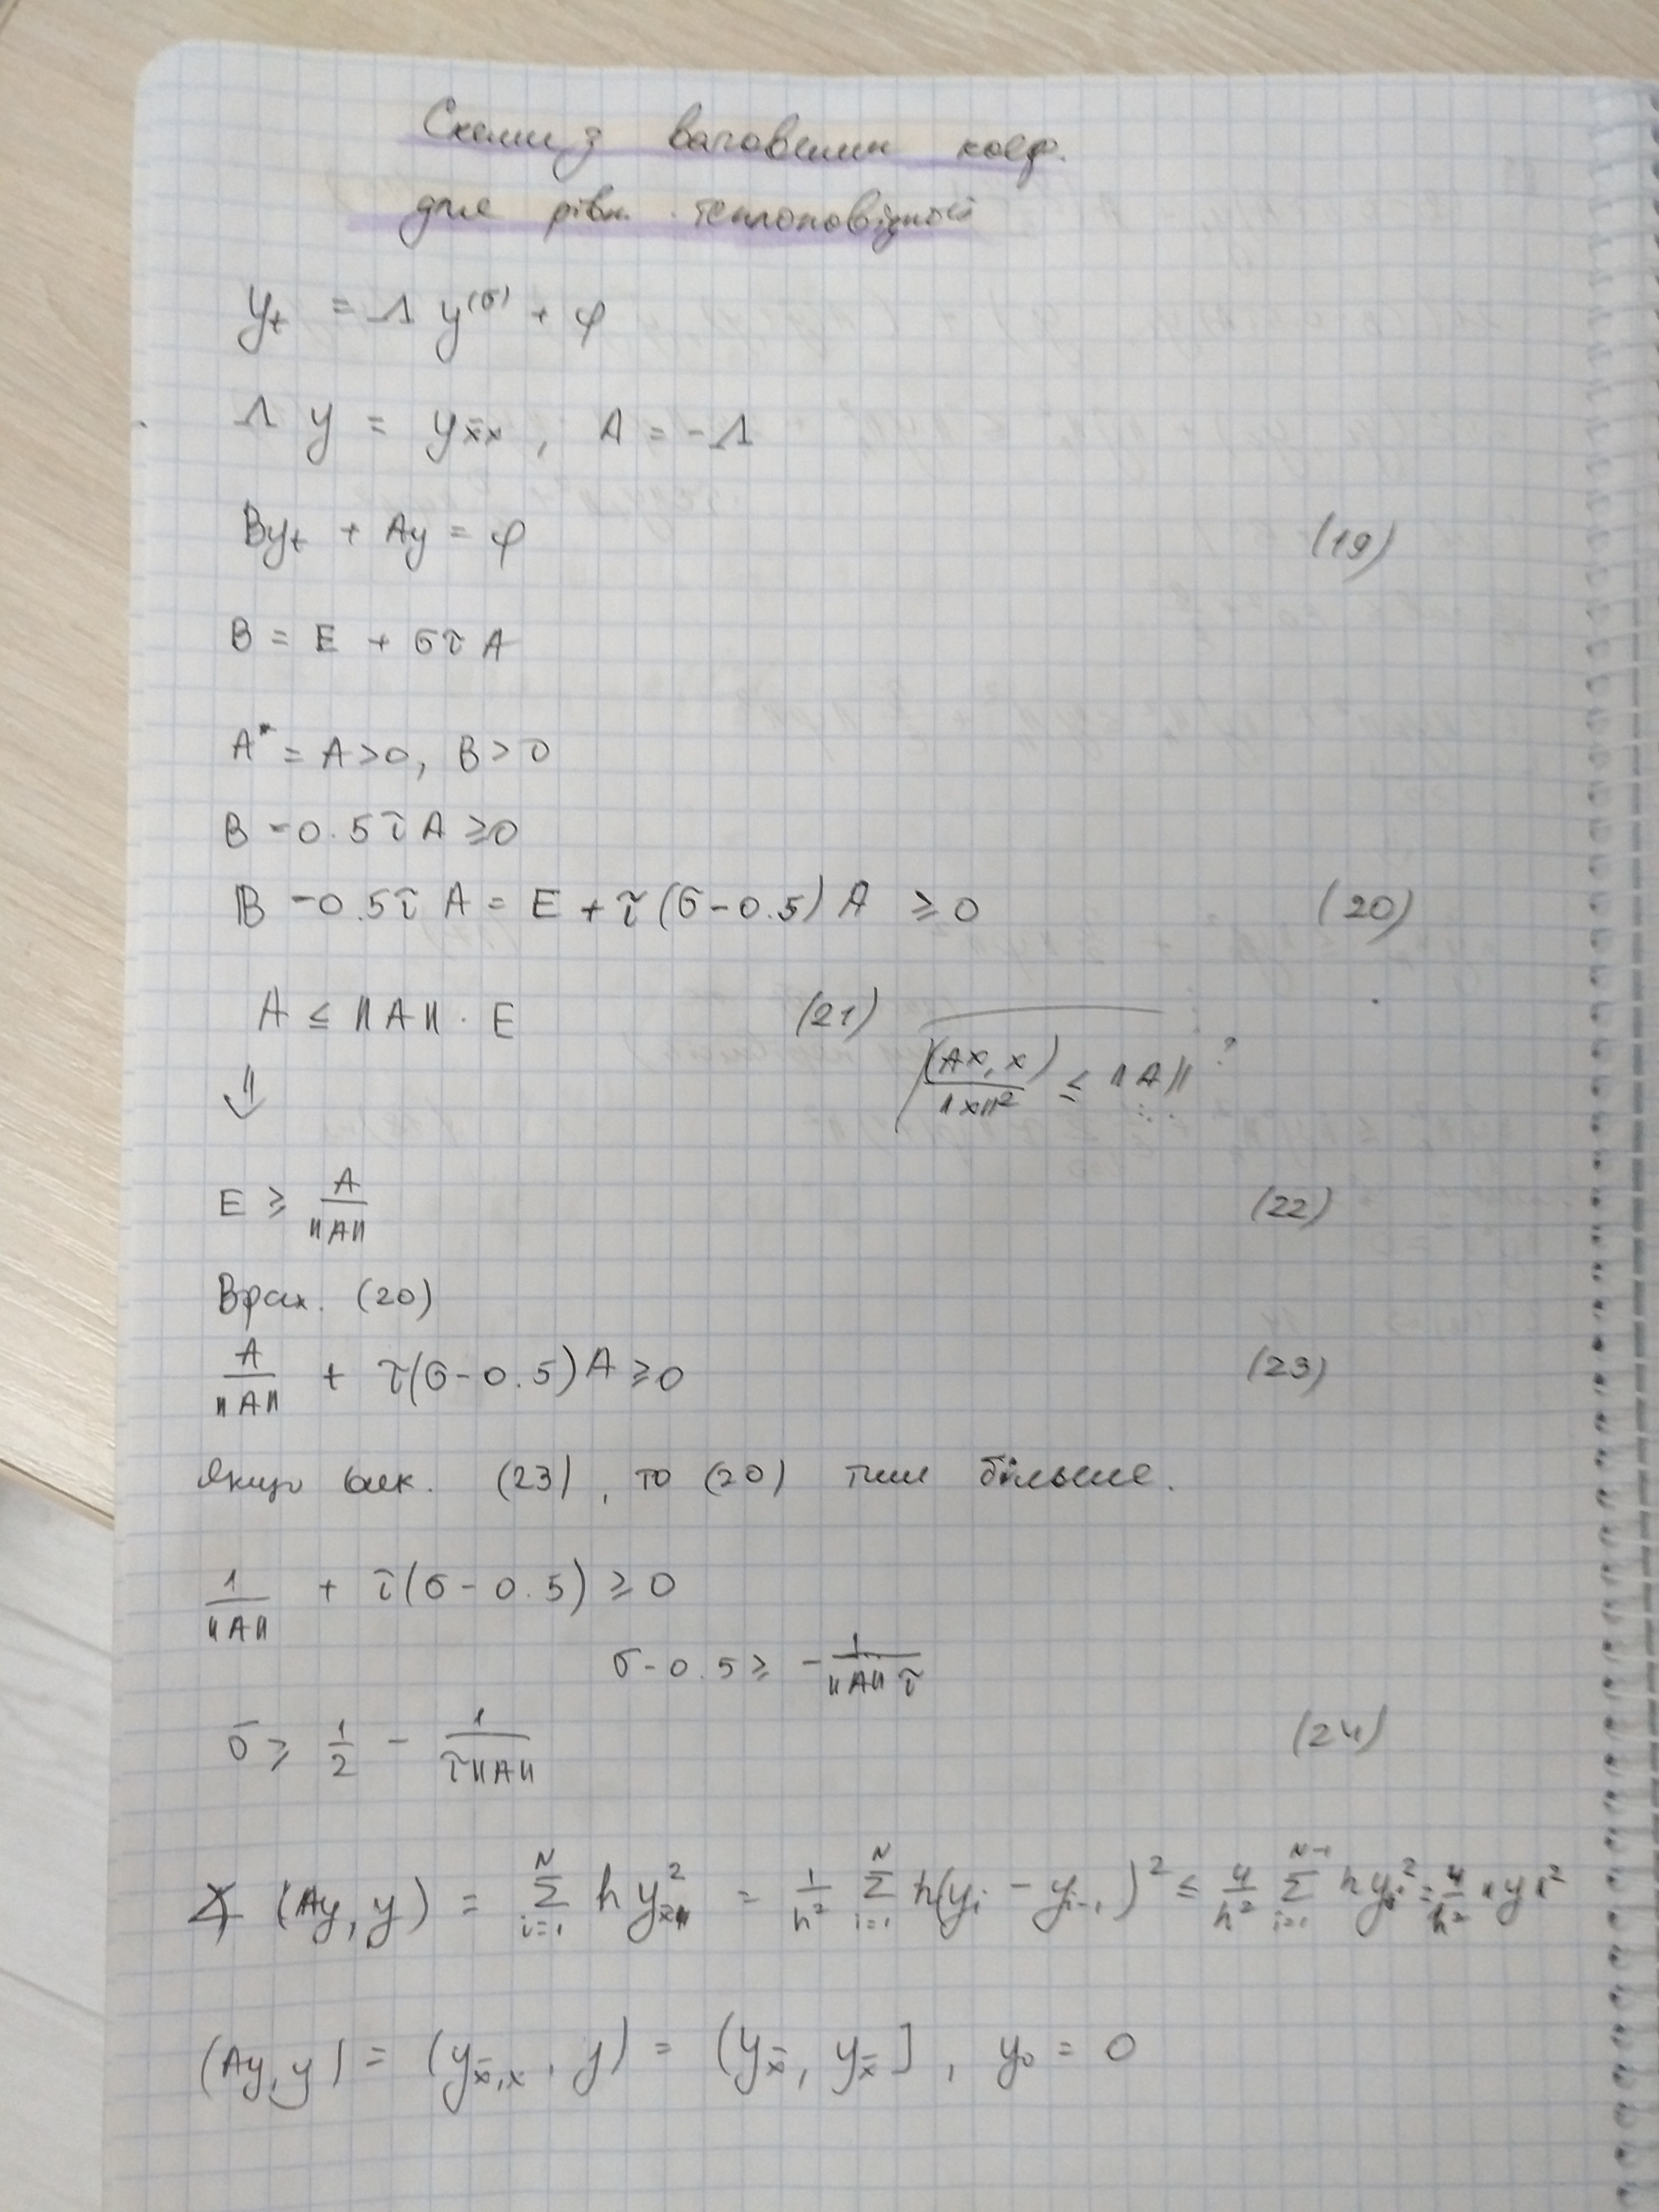 Схеми з ваговими коеф.
для рівн. теплопровідності
y_t = Λ y^(σ) + φ
Λ y = y_x̄x , A = -Λ
By_t + Ay = φ (19)
B = E + στ A
A* = A > 0, B > 0
B - 0.5τ A ≥ 0
B - 0.5τ A = E + τ(σ - 0.5) A ≥ 0 (20)
A ≤ ||A|| · E (21) (Ax, x) / ||x||² ≤ ||A|| ?
⇓
E ≥ A / ||A|| (22)
Врах. (20)
A / ||A|| + τ(σ - 0.5) A ≥ 0 (23)
Якщо вик. (23), то (20) тим більше.
1 / ||A|| + τ(σ - 0.5) ≥ 0
σ - 0.5 ≥ - 1 / ||A|| τ
σ ≥ 1/2 - 1 / τ||A|| (24)
(Ay, y) = Σ_{i=1}^{N} h y_x̄² = 1/h² Σ_{i=1}^{N} h(y_i - y_{i-1})² ≤ 4/h² Σ_{i=1}^{N-1} h y_i² = 4/h² ||y||²
(Ay, y) = (y_x̄,x , y) = (y_x̄, y_x̄] , y_0 = 0